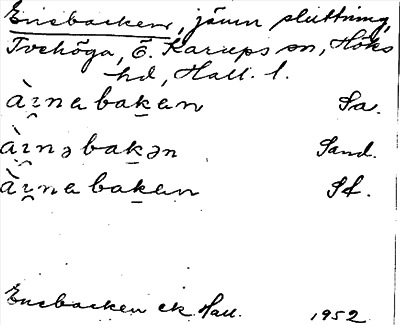 Enebacken, jämn sluttning,
Tvehöga, Ö. Karups sn, Höks
hd, Hall. l.
àı̯nabaḵan Sa.
àı̯nəbaḵən Sand.
àı̯nabaḵan Sf.
Enebacken ek Hall. 1952